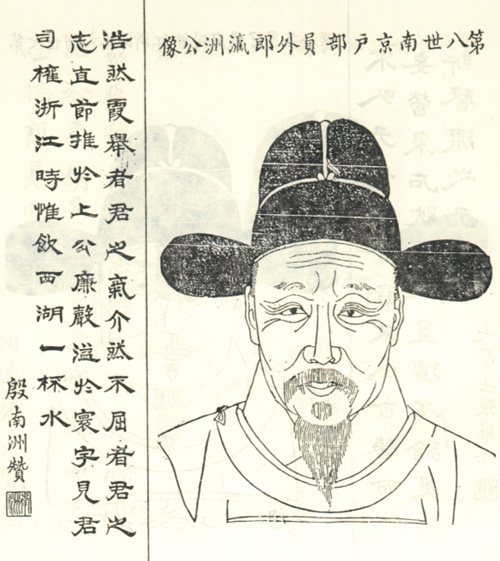 第八世南京戶部員外郎瀛洲公像
浩然霞舉者君之氣介然不屈者君之
志直節推於上公廉聲溢於寰宇見君
司榷浙江時惟飲西湖一杯水
殷南洲贊